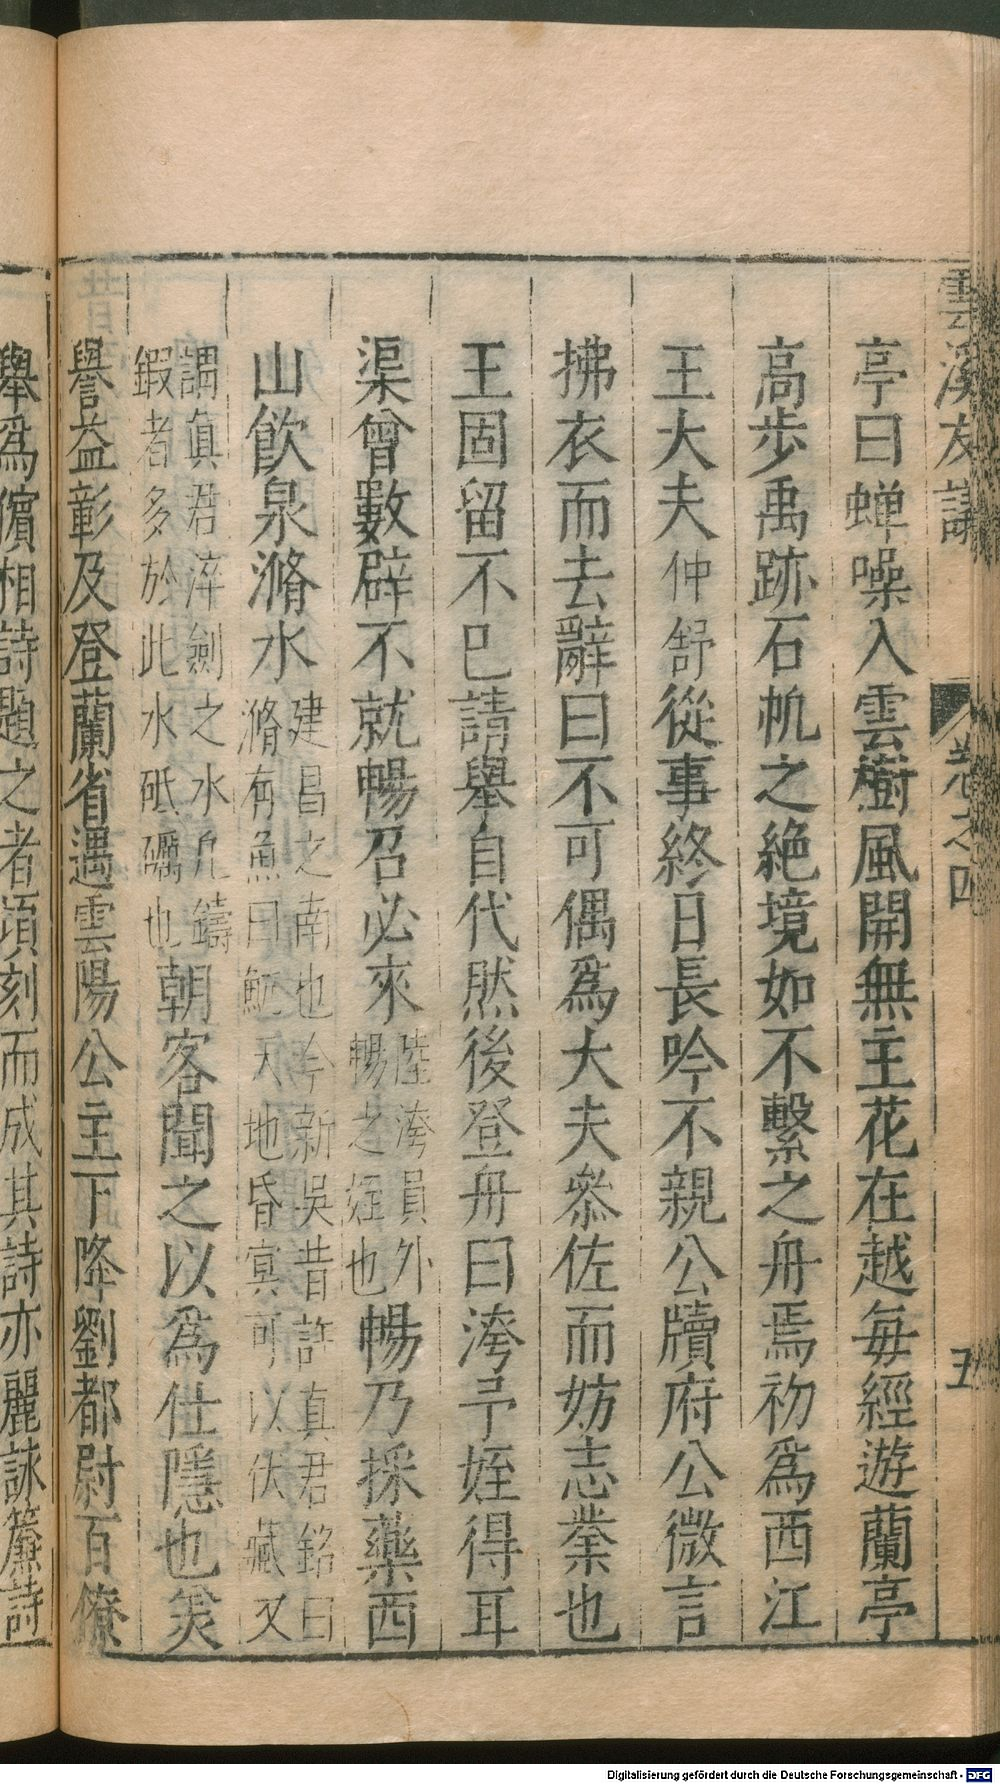 雲溪友議
卷之四
五
亭曰蝉噪入雲樹風開無主花在越每經遊蘭亭
高步禹跡石帆之絕境如不繫之舟焉初爲西江
王大夫仲舒從事終日長吟不親公牘府公微言
拂衣而去辭曰不可偶爲大夫叅佐而妨志業也
王固留不巳請舉自代然後登舟曰洿予姪得耳
渠曾數辟不就暢召必來
陸洿員外
暢之姪也
暢乃採藥西
山飲泉滫水
建昌之南也今新吳昔許真君銘曰
滫有魚曰魧天地昏寘可以伏藏又
謂真君淬劍之水凡鑄
鍜者多於此水砥礪也
朝客聞之以爲仕隱也矣
譽益彰及登蘭省遇雲陽公主下降劉都尉百僚
舉爲儐相詩題之者頃刻而成其詩亦麗詠簾詩
Digitalisierung gefördert durch die Deutsche Forschungsgemeinschaft - DFG